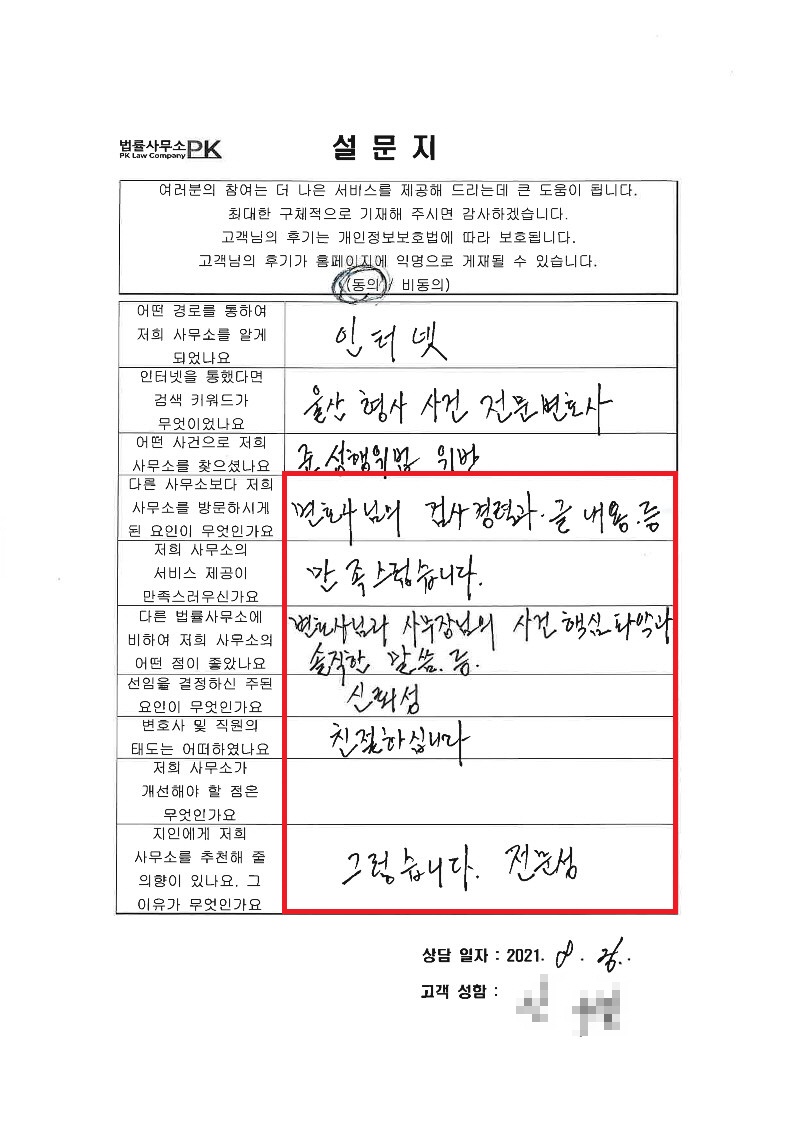 법률사무소 PK
PK Law Company
설 문 지
여러분의 참여는 더 나은 서비스를 제공해 드리는데 큰 도움이 됩니다.
최대한 구체적으로 기재해 주시면 감사하겠습니다.
고객님의 후기는 개인정보보호법에 따라 보호됩니다.
고객님의 후기가 홈페이지에 익명으로 게재될 수 있습니다.
(동의 / 비동의)
어떤 경로를 통하여
저희 사무소를 알게
되었나요
인터넷
인터넷을 통했다면
검색 키워드가
무엇이었나요
울산 형사 사건 전문변호사
어떤 사건으로 저희
사무소를 찾으셨나요
준 성행위법 위반
다른 사무소보다 저희
사무소를 방문하시게
된 요인이 무엇인가요
변호사님의 검사경력과. 글 내용. 등
저희 사무소의
서비스 제공이
만족스러우신가요
만족스럽습니다.
다른 법률사무소에
비하여 저희 사무소의
어떤 점이 좋았나요
변호사님과 사무장님의 사건 핵심 파악과
솔직한 말씀. 등.
선임을 결정하신 주된
요인이 무엇인가요
신뢰성
변호사 및 직원의
태도는 어떠하였나요
친절하십니다
저희 사무소가
개선해야 할 점은
무엇인가요
지인에게 저희
사무소를 추천해 줄
의향이 있나요. 그
이유가 무엇인가요
그렇습니다. 전문성
상담 일자 : 2021. 8. 26..
고객 성함 :